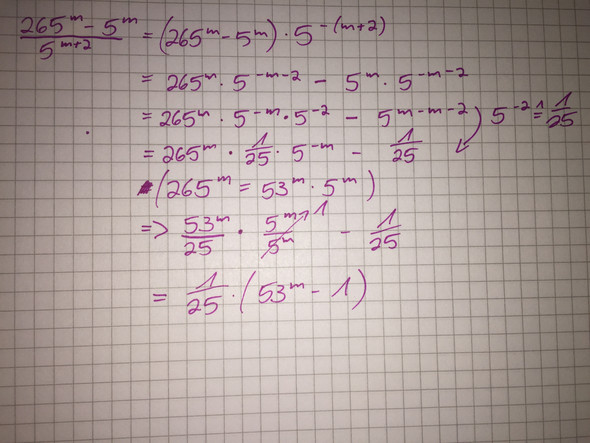 (265^m - 5^m) / 5^(m+2) = (265^m - 5^m) · 5^-(m+2)
= 265^m · 5^(-m-2) - 5^m · 5^(-m-2)
= 265^m · 5^-m · 5^-2 - 5^(m-m-2) ) 5^-2 ≙ 1/25
= 265^m · 1/25 · 5^-m - 1/25
(265^m = 53^m · 5^m)
=> 53^m/25 · 5^m/5^m → 1 - 1/25
= 1/25 · (53^m - 1)